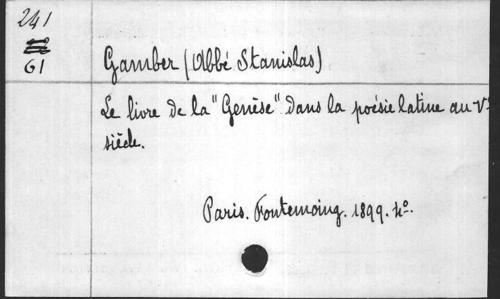 241
G1
Gamber (Abbé Stanislas)
Le livre de la "Genèse" dans la poésie latine au Ve
siècle.
Paris. Fontemoing. 1899. 4o.